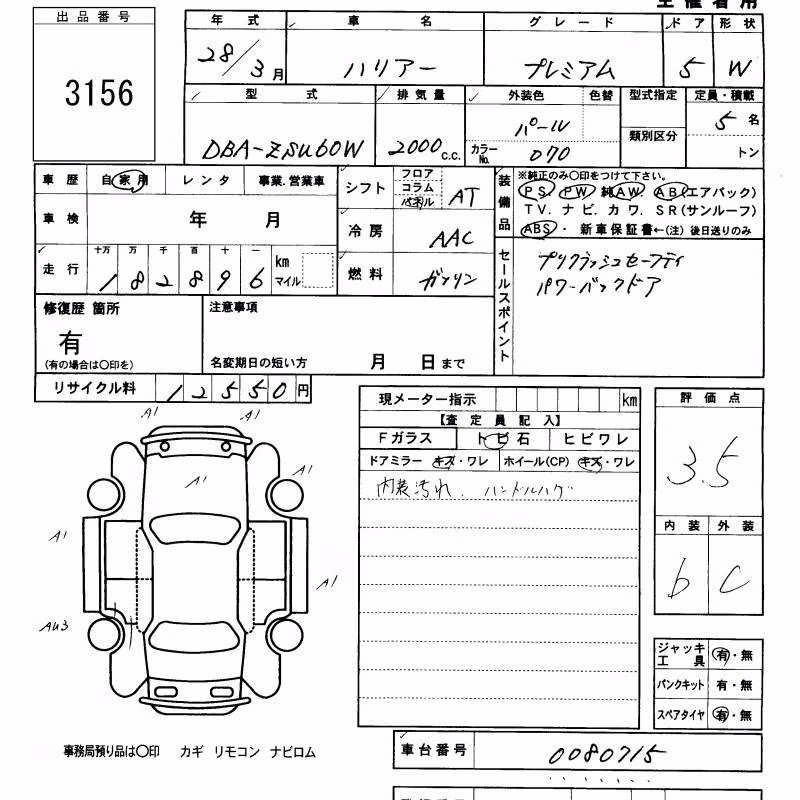 出品番号
3156
年式 車名 グレード ドア 形状
28/3月 ハリアー プレミアム 5 W
型式 排気量 外装色 色替 型式指定 定員・積載
DBA-ZSU60W 2000c.c. パール 5名
カラーNo. 070 類別区分 トン
車歴 自家用 レンタ 事業.営業車
シフト フロア コラム パネル AT
装備品 ※純正のみ〇印をつけて下さい。
PS. PW 純AW. AB(エアバック)
TV. ナビ. カワ. SR(サンルーフ)
ABS・新車保証書←(注)後日送りのみ
車検 年 月
冷房 AAC
走行 十万 万 千 百 十 一
182896 km マイル
燃料 ガソリン
セールスポイント
プリクラッシュセーフティ
パワーバックドア
修復歴 箇所
有
(有の場合は〇印を)
注意事項
名変期日の短い方 月 日まで
リサイクル料 12550円
現メーター指示 km
【査定員記入】
Fガラス トビ石 ヒビワレ
ドアミラー キズ・ワレ ホイール(CP) キズ・ワレ
内装汚れ. ハンドルハゲ
評価点
3.5
内装 外装
b C
A1 A1
A1
A1
A1
AU3
ジャッキ工具 有・無
パンクキット 有・無
スペアタイヤ 有・無
事務局預り品は〇印 カギ リモコン ナビロム
車台番号 0080715